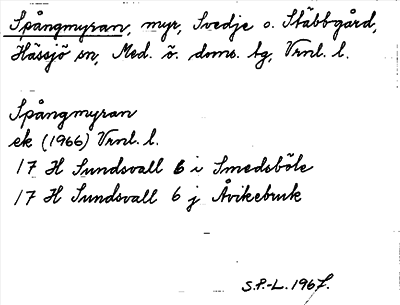 Spångmyran, myr, Svedje o. Stäbbgård,
Hässjö sn, Med. ö. doms. tg, Vrnl. l.
Spångmyran
ek (1966) Vrnl. l.
17 H Sundsvall 6 i Smedsböle
17 H Sundsvall 6 j Åvikebruk
S.P.-L. 1967.